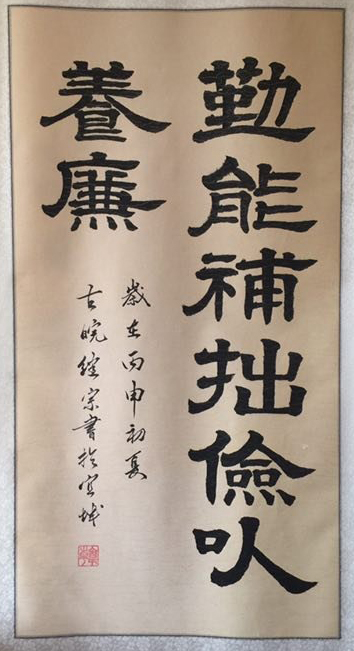 勤能補拙儉以
養廉
歲在丙申初夏
古皖繼宗書於宜城